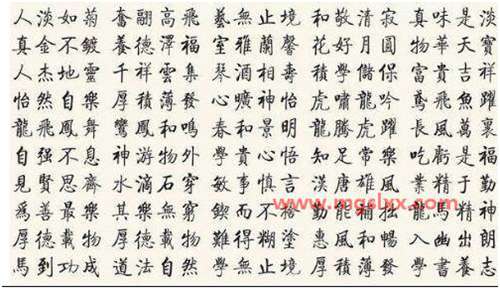 人淡如菊 奮翮高飛 藝無止境 和敬清寂 真味是淡
真金不鍍 養德澤福 室雅蘭馨 花好月圓 物華天寶
人杰地靈 千祥雲集 琴酒 壽 學儲保 富貴吉祥
怡然自樂 厚積薄發 心曠神怡 虎嘯龍吟 鳶飛魚躍
龍飛鳳舞 鸞鳳和鳴 春和景明 龍騰虎躍 長風萬裏
自强不息 神游物外 學貴心悟 知足常樂 吃虧是福
見賢思齊 水滴石穿 敏事慎言 漢唐雄風 業精于勤
www.mgslxx.com
爲善最樂 其樂無窮 鍥而不捨 勤能補拙 龍馬精神
厚德載物 厚德載物 難得糊塗 惠風和暢 入幽出朗
馬到功成 道法自然 學無止境 厚積薄發 學書養志